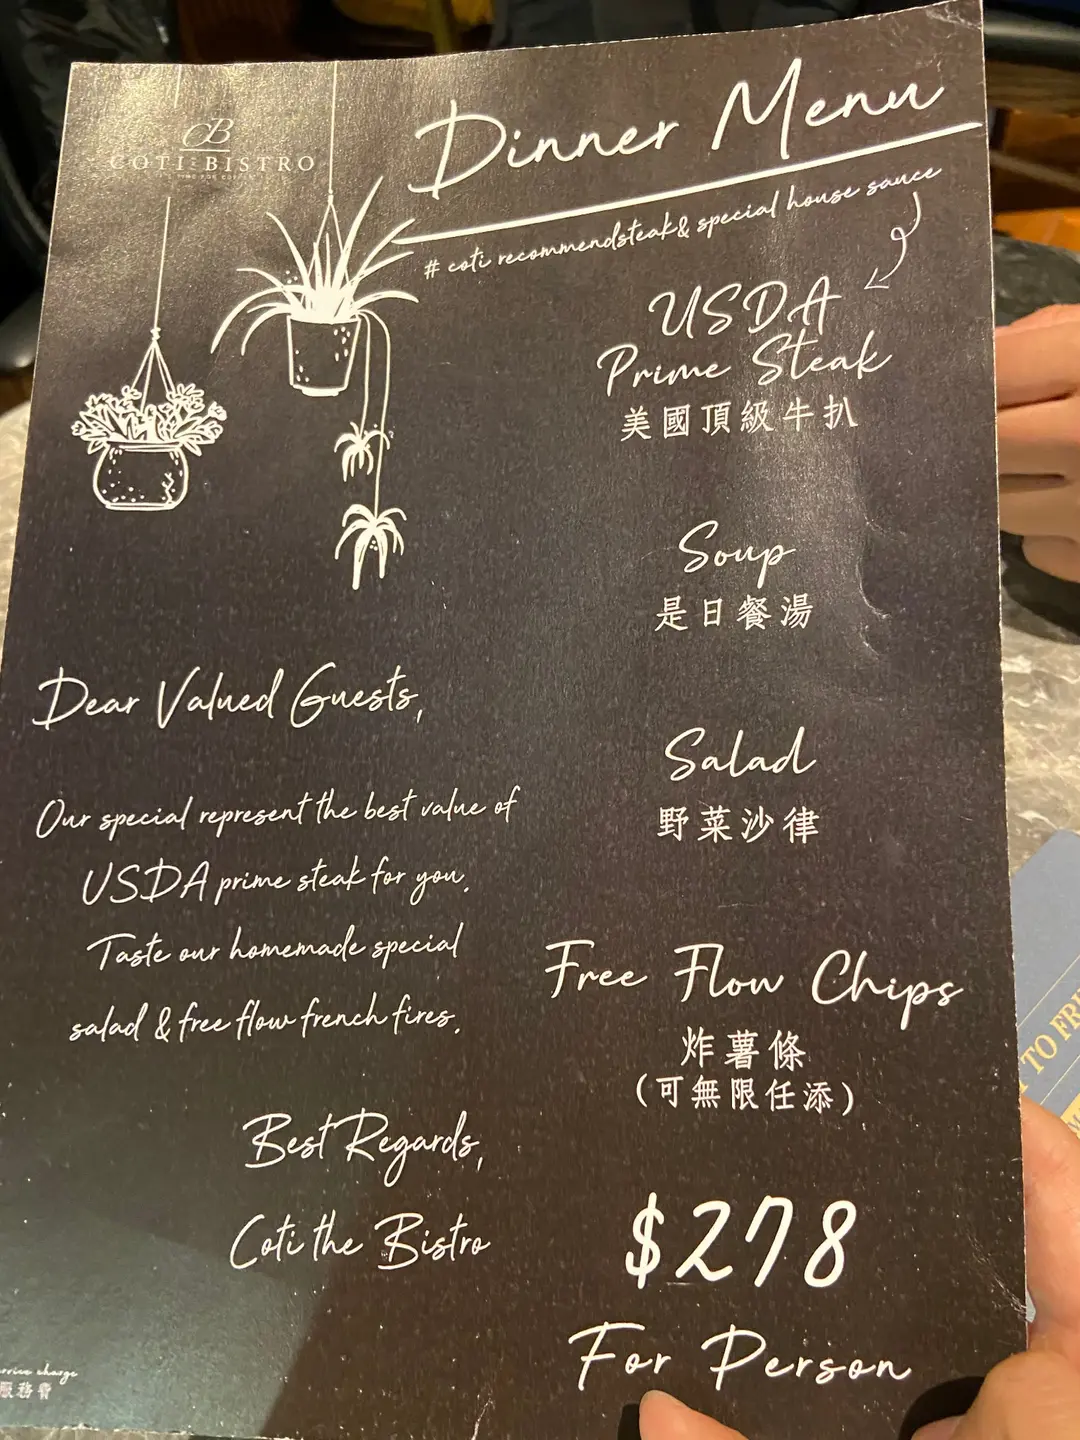 CB
COTI BISTRO
Dinner Menu
# coti recommendsteak& special house sauce
USDA
Prime Steak
美國頂級牛扒
Soup
是日餐湯
Salad
野菜沙律
Free Flow Chips
炸薯條
(可無限任添)
$278
For Person
Dear Valued Guests,
Our special represent the best value of
USDA prime steak for you.
Taste our homemade special
salad & free flow french fires.
Best Regards,
Coti the Bistro
charge
服務費
TO FRI